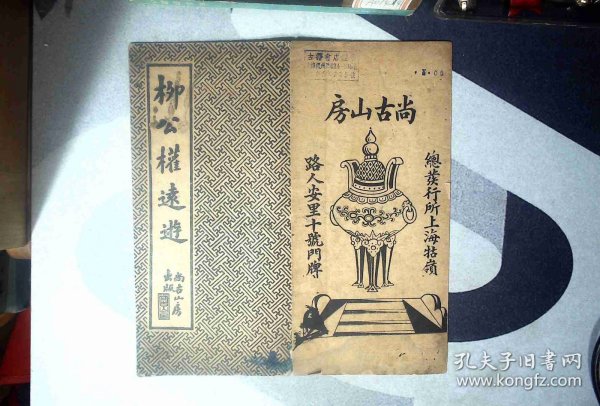 柳公權遠遊
尚古山房
出版
房山古尚
總發行所上海牯嶺
路人安里十號門牌
孔夫子旧书网
www.kongfz.com